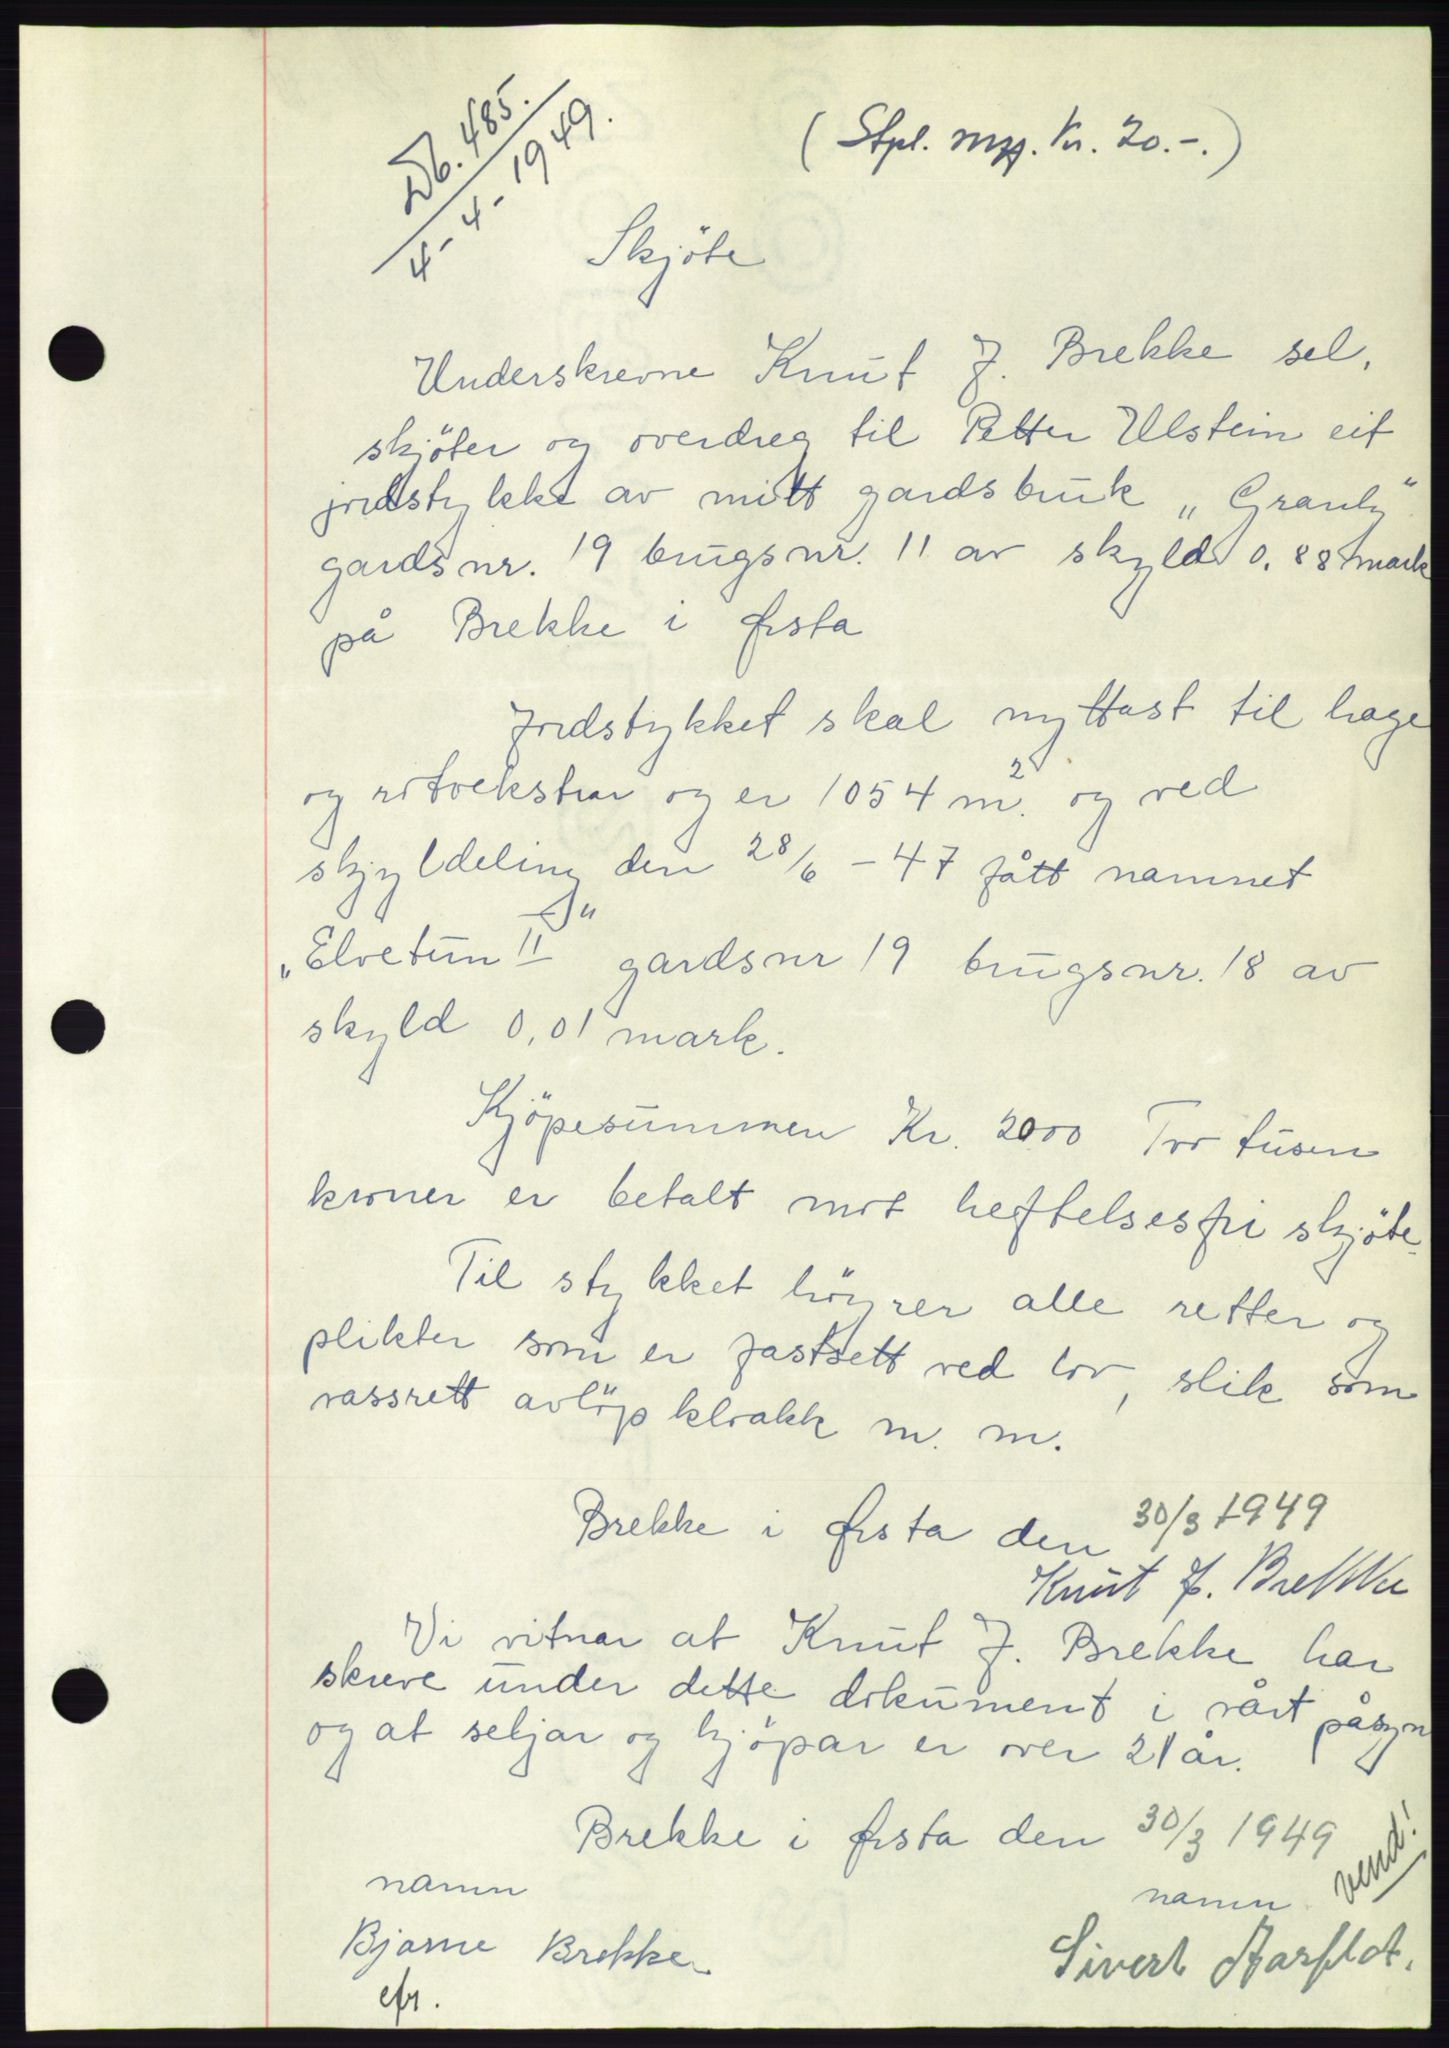 Db. 485.
4-4-1949.
(Stpl. mrk. Kr. 20.-.)
Skjöte
Underskrevne Knut J. Brekke sel,
skjöter og overdreg til Petter Ulstein eit
jordstykke av mitt gardsbruk „Granly"
gardsnr. 19 brugsnr. 11 av skyld 0.88 mark
på Brekke i Ørsta
Jordstykket skal nyttast til hage
og rotvekstrar og er 1054 m². og ved
skjyldeling den 28/6 - 47 fått namnet
„Elvetun II" gardsnr 19 brugsnr. 18 av
skyld 0,01 mark.
Kjöpesummen Kr. 2000 Tvo tusen
kroner er betalt mot heftelsesfri skjöte.
Til stykket höyrer alle retter og
plikter som er fastsett ved lov, slik som
vassrett avlöp kloakk m. m.
Brekke i Ørsta den 30/3 1949
Knut J. Brekke
Vi vitnar at Knut J. Brekke har
skreve under dette dokument i vårt påsyn
og at seljar og kjöpar er over 21 år.
Brekke i Ørsta den 30/3 1949
vend!
namn namn
Bjarne Brekke Sivert Aarflot.
efr.